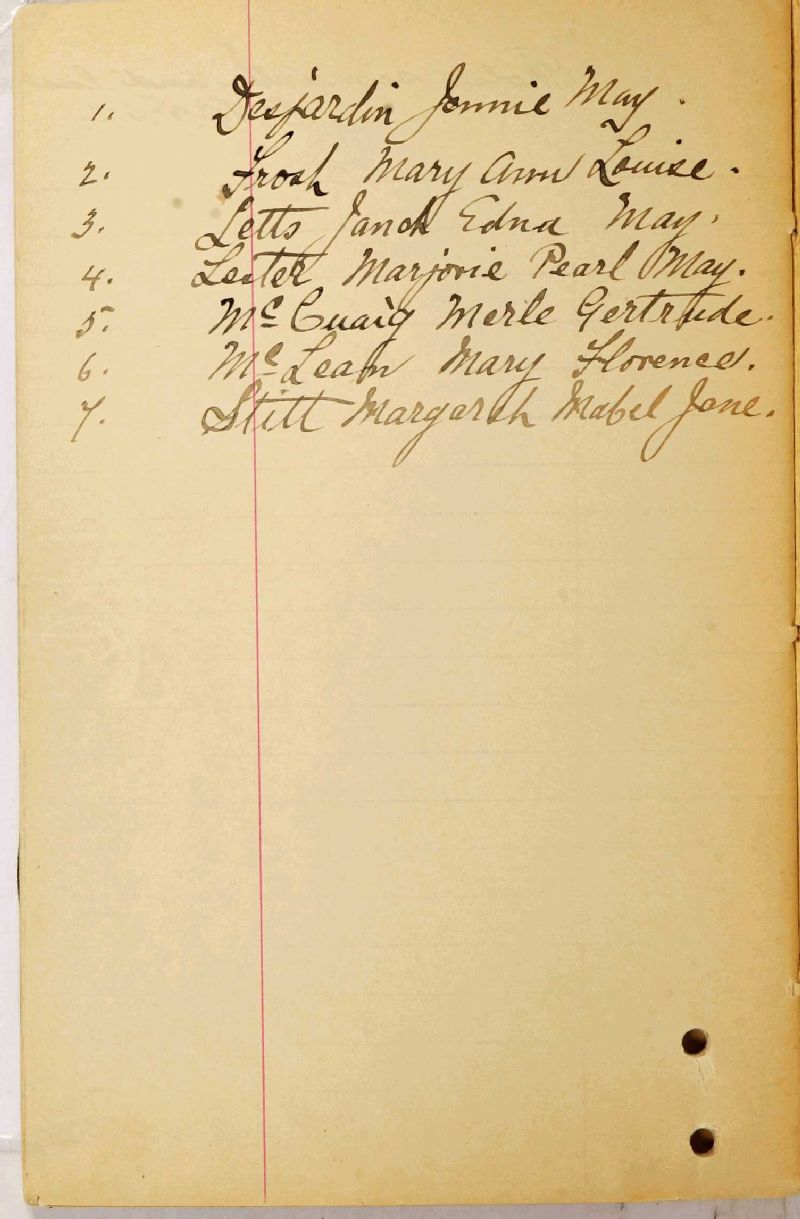 1. Desjardin Jennie May.
2. Frosh Mary Ann Louise.
3. Letts Janet Edna May.
4. Lester Marjorie Pearl May.
5. McCuaig Merle Gertrude.
6. McLean Mary Florence.
7. Stitt Margaret Mabel Jane.